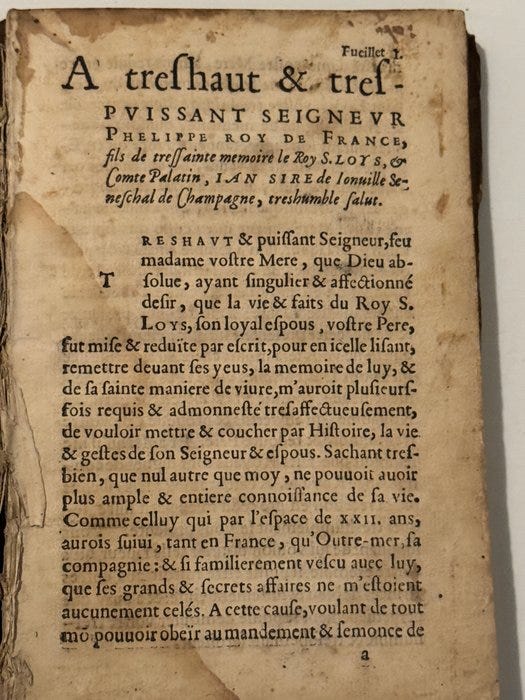 Fueillet 1.
A treſhaut & treſ-
PVISSANT SEIGNEVR
PHELIPPE ROY DE FRANCE,
fils de treſſainte memoire le Roy S. LOYS, &
Comte Palatin, IAN SIRE de Ionuille Se-
neſchal de Champagne, treshumble ſalut.
TRESHAVT & puiſſant Seigneur, feu
madame voſtre Mere, que Dieu ab-
ſolue, ayant ſingulier & affectionné
deſir, que la vie & faits du Roy S.
LOYS, ſon loyal eſpous, voſtre Pere,
fut miſe & reduite par eſcrit, pour en icelle liſant,
remettre deuant ſes yeus, la memoire de luy, &
de ſa ſainte maniere de viure, m'auroit pluſieurs-
fois requis & admonneſté treſaffectueuſement,
de vouloir mettre & coucher par Hiſtoire, la vie
& geſtes de ſon Seigneur & eſpous. Sachant treſ-
bien, que nul autre que moy, ne pouuoit auoir
plus ample & entiere connoiſſance de ſa vie.
Comme celluy qui par l'eſpace de XXII. ans,
aurois ſuiui, tant en France, qu'Outre-mer, ſa
compagnie: & ſi familierement veſcu auec luy,
que ſes grands & ſecrets affaires ne m'eſtoient
aucunement celés. A cette cauſe, voulant de tout
mō pouuoir obeïr au mandement & ſemonce de
a